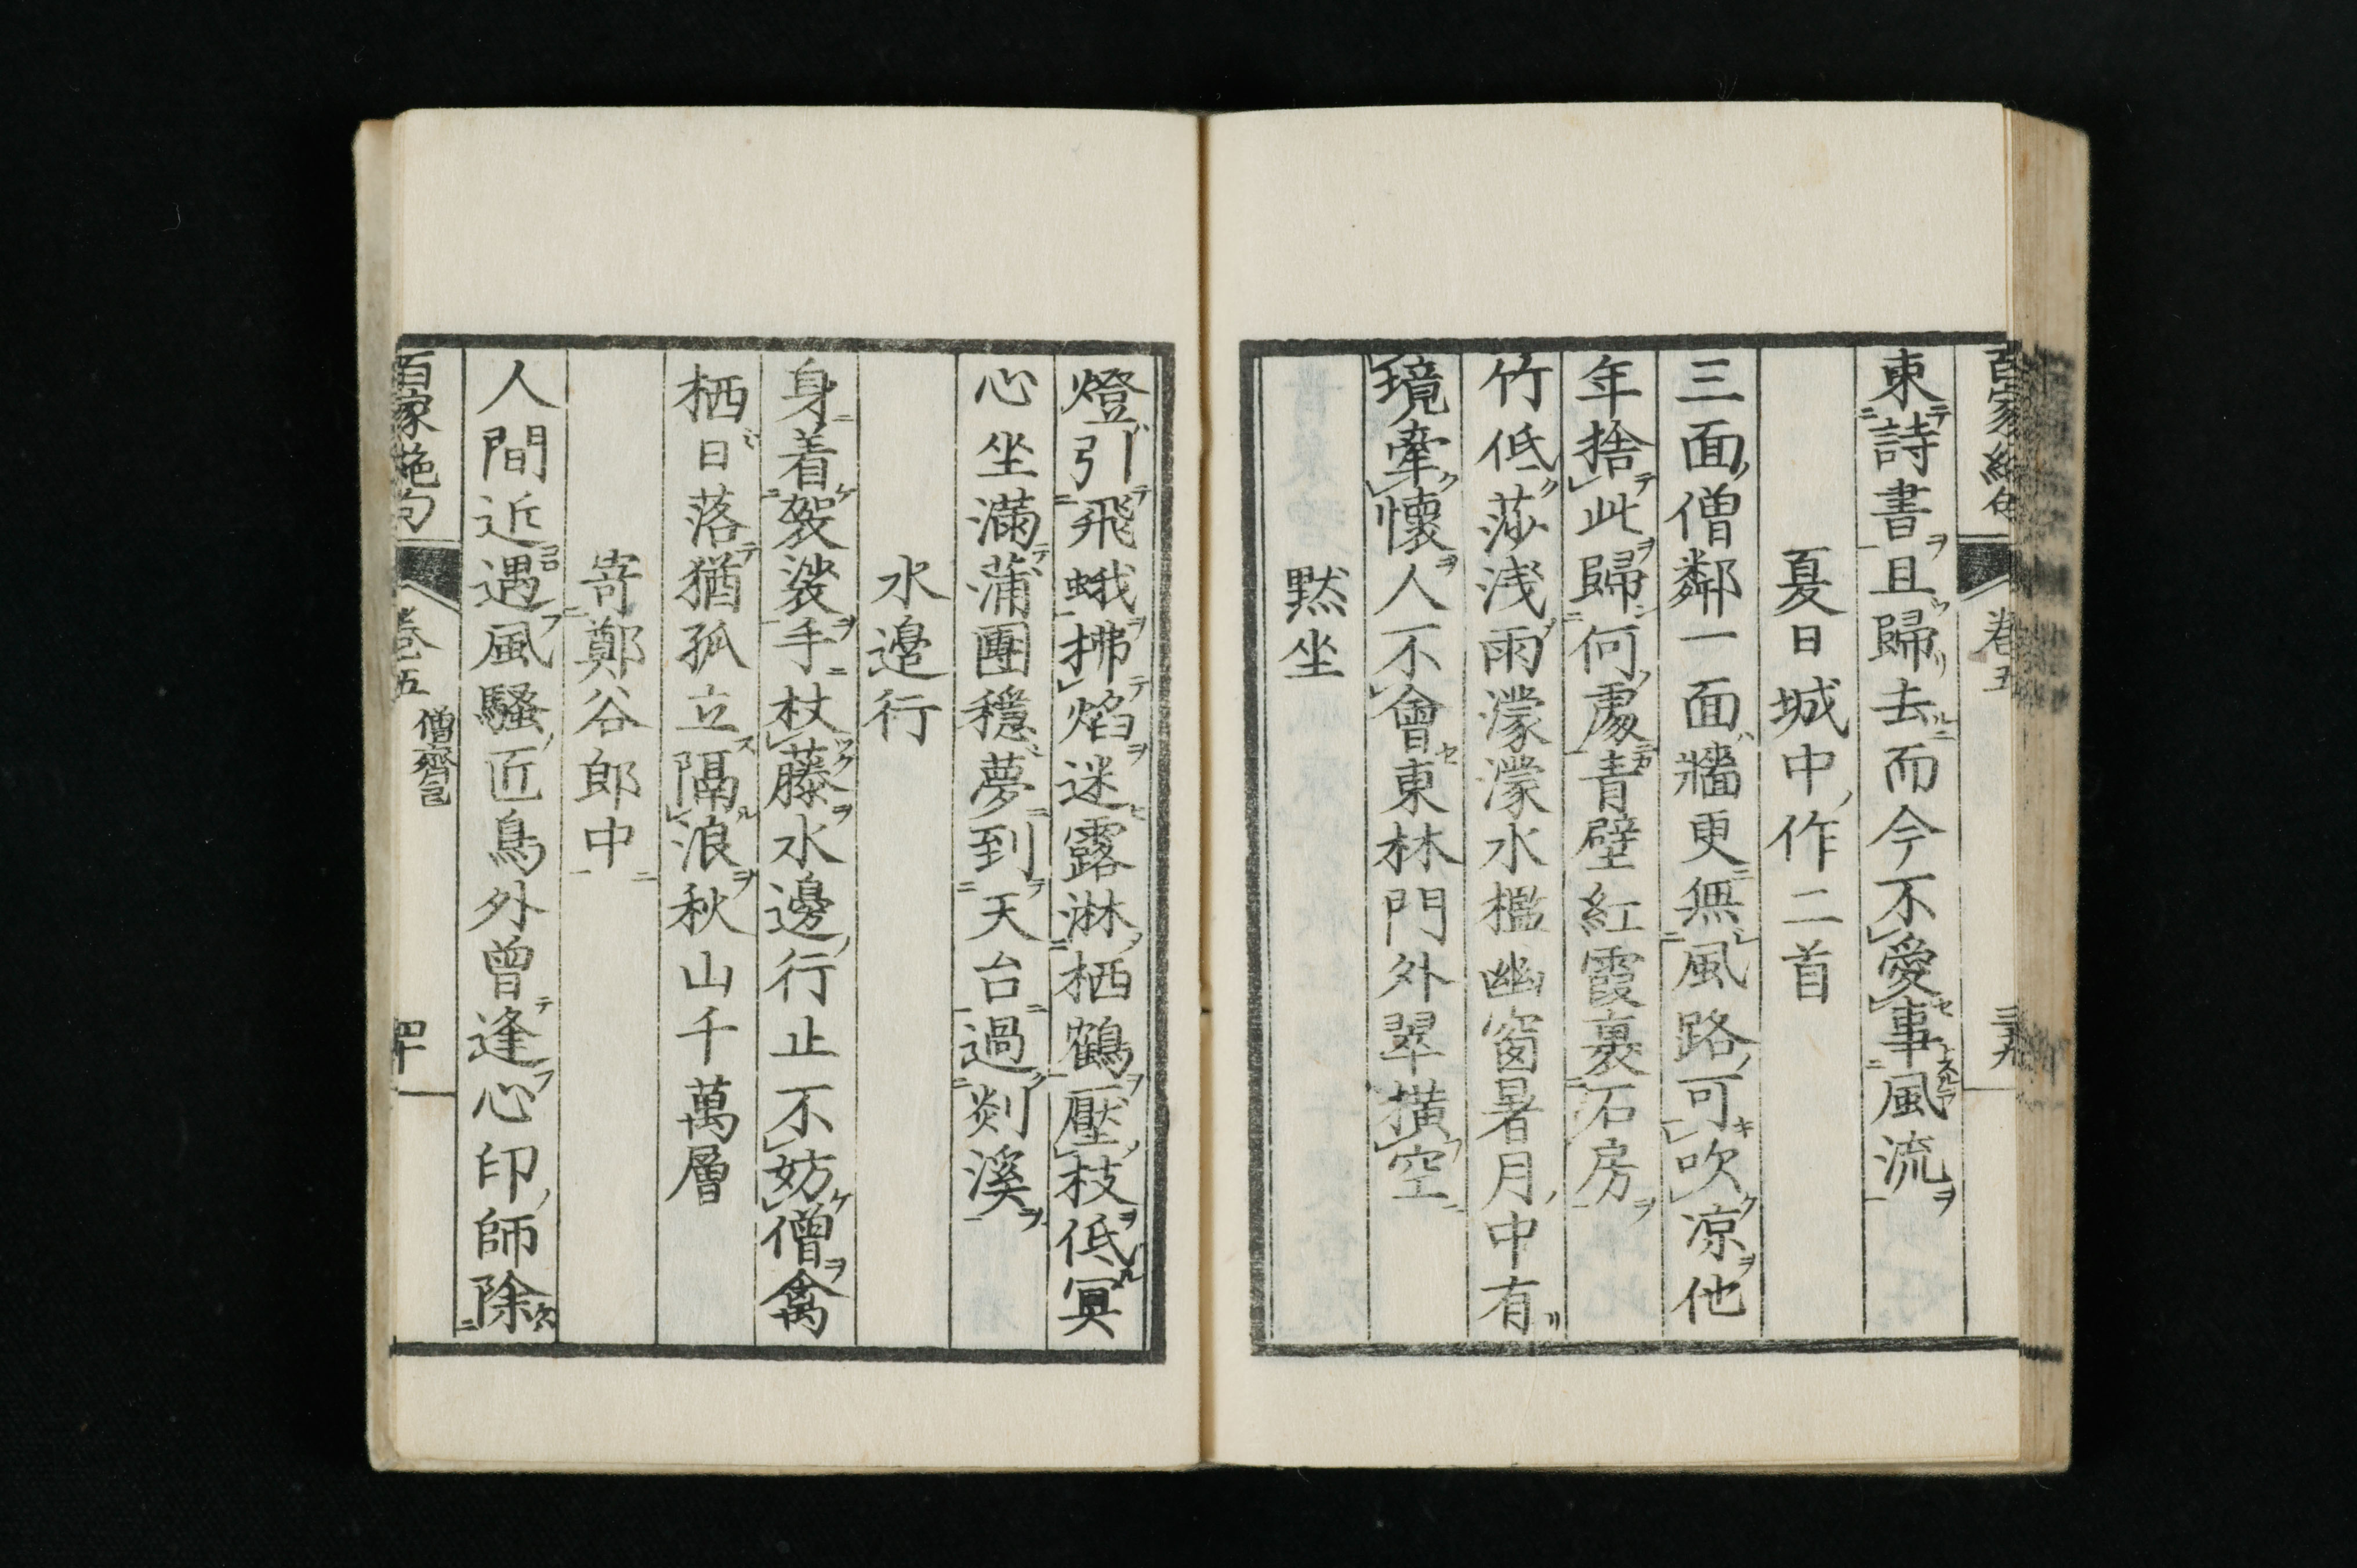 百家絶句
卷五
三十九
東詩書且歸去而今不愛事風流
夏日城中作二首
三面僧鄰一面牆更無風路可吹凉他
年捨此歸何處青壁紅霞裹石房
竹低莎浅雨濛濛水檻幽窗暑月中有
境牽懷人不會東林門外翠橫空
黙坐
燈引飛蛾拂焰迷露淋栖鶴壓枝低冥
心坐滿蒲團穩夢到天台過剡溪
水邉行
身着袈裟手杖藤水邊行止不妨僧禽
栖日落猶孤立隔浪秋山千萬層
寄鄭谷郎中
人間近遇風騷匠鳥外曾逢心印師除
百家絶句
卷五
僧齊己
四十